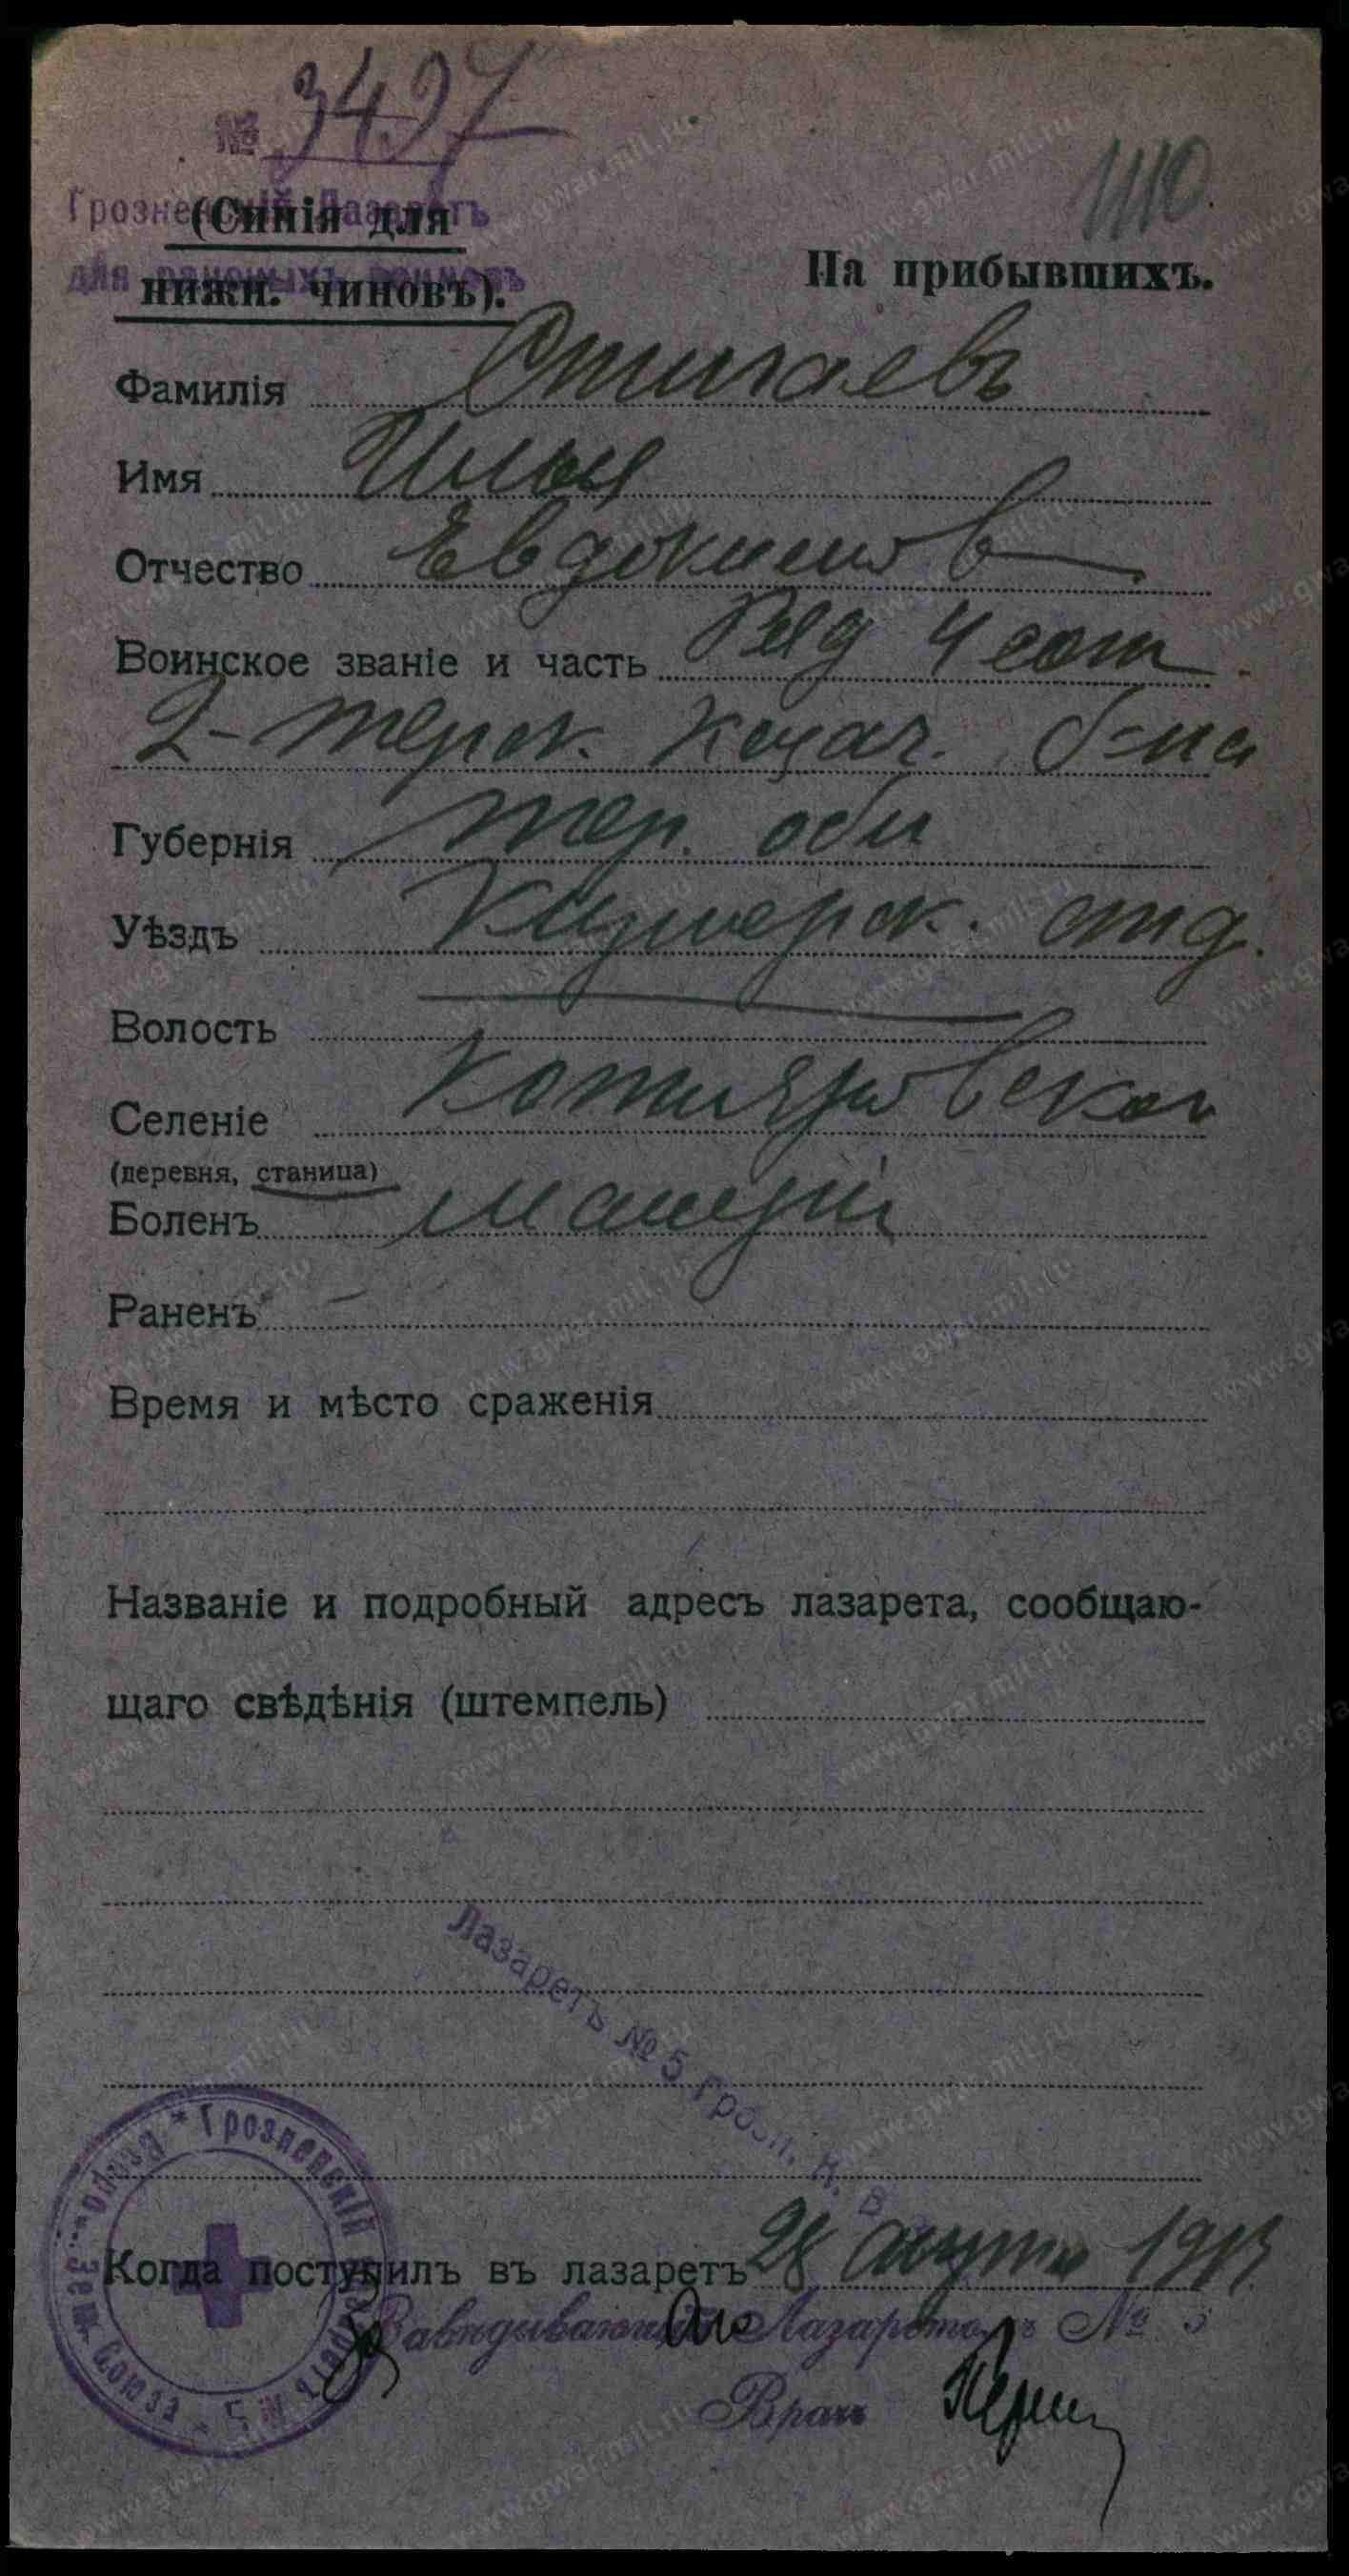 № 3497
1110
Грозненскій Лазаретъ
(Синія для
для раненыхъ воиновъ
нижн. чиновъ).
На прибывшихъ.
Фамилія Стигаевъ
Имя Илья
Отчество Евдокимов
Воинское званіе и часть Ряд 4 сотн.
2-Терск. Казач. б-на
Губернія Тер. обл
Уѣздъ Кизлярск. отд.
Волость
Селеніе Котляровской
(деревня, станица)
Боленъ малярія
Раненъ —
Время и мѣсто сраженія
Названіе и подробный адресъ лазарета, сообщаю-
щаго свѣдѣнія (штемпель)
Лазаретъ № 5 Грозн.
Грозненскій Лазаретъ № 5 Всеро. Зем. Союза
Когда поступилъ въ лазаретъ 28 августа 1915
Завѣдывающій Лазаретомъ № 5
Врачъ